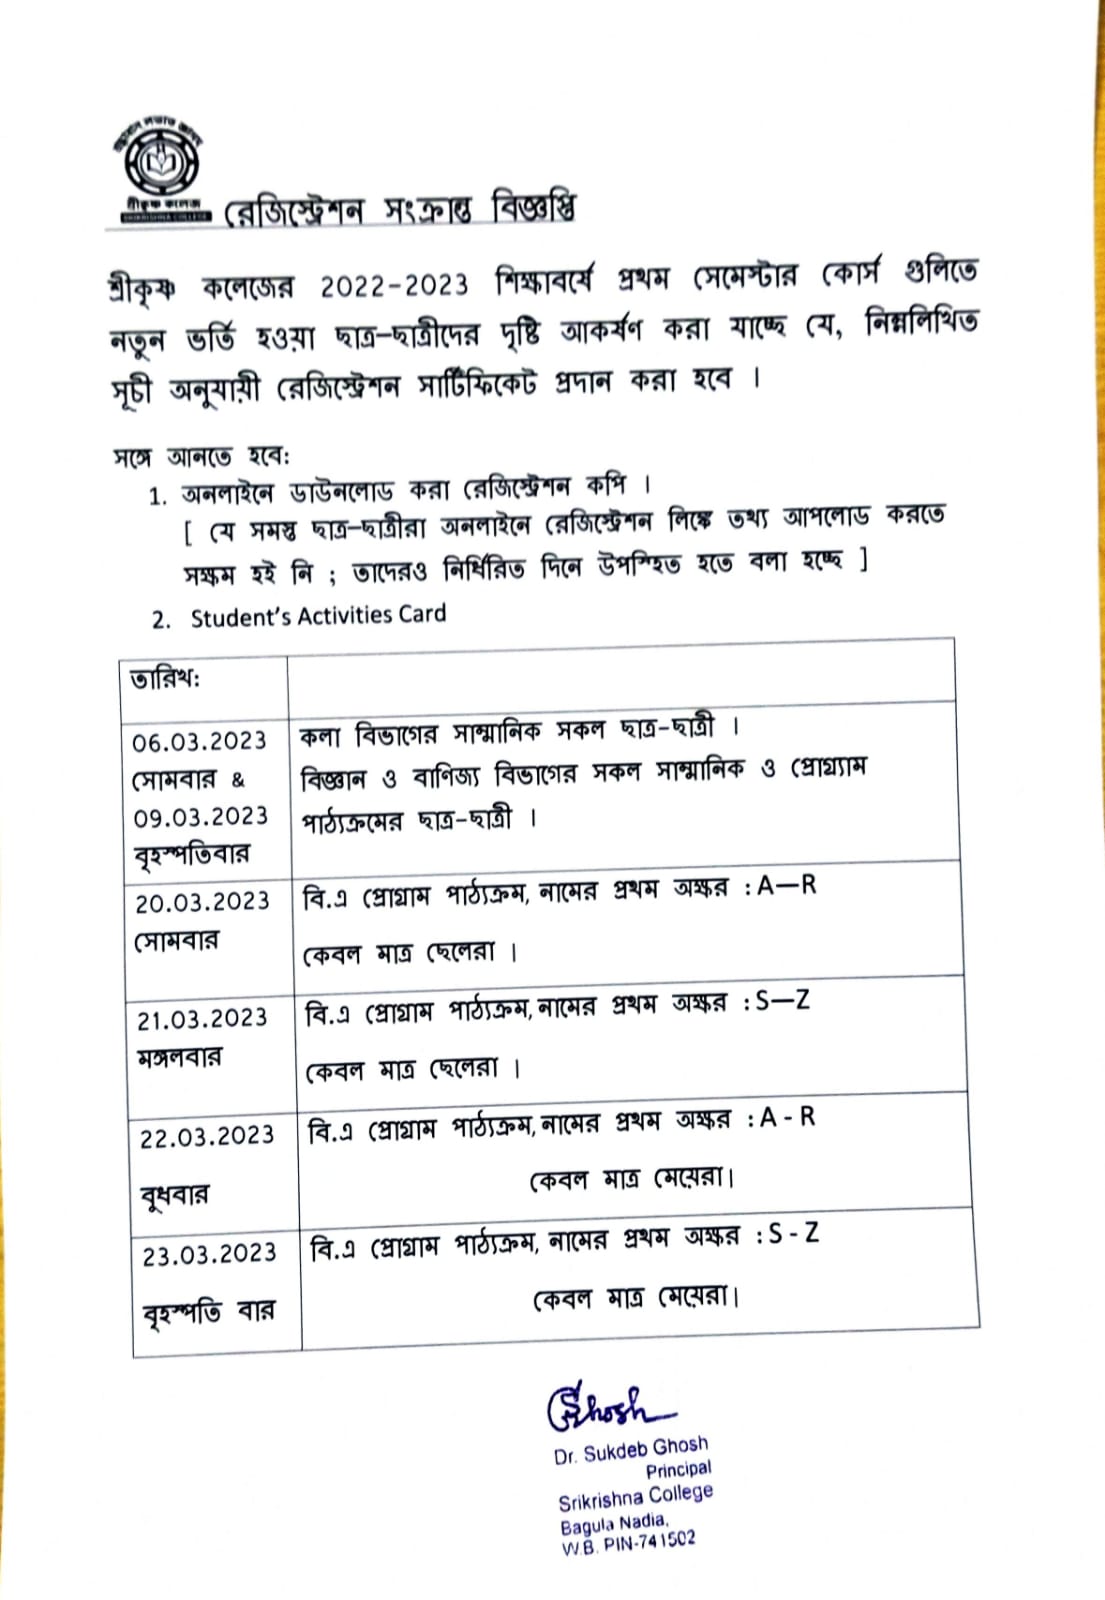 শ্রীকৃষ্ণ কলেজ
SRIKRISHNA COLLEGE
রেজিস্ট্রেশন সংক্রান্ত বিজ্ঞপ্তি
শ্রীকৃষ্ণ কলেজের 2022-2023 শিক্ষাবর্ষে প্রথম সেমেস্টার কোর্স গুলিতে
নতুন ভর্তি হওয়া ছাত্র-ছাত্রীদের দৃষ্টি আকর্ষণ করা যাচ্ছে যে, নিম্নলিখিত
সূচী অনুযায়ী রেজিস্ট্রেশন সার্টিফিকেট প্রদান করা হবে ।
সঙ্গে আনতে হবে:
1. অনলাইনে ডাউনলোড করা রেজিস্ট্রেশন কপি ।
[ যে সমস্ত ছাত্র-ছাত্রীরা অনলাইনে রেজিস্ট্রেশন লিঙ্কে তথ্য আপলোড করতে
সক্ষম হই নি ; তাদেরও নির্ধিরিত দিনে উপস্হিত হতে বলা হচ্ছে ]
2. Student's Activities Card
তারিখ:
06.03.2023
সোমবার &
09.03.2023
বৃহস্পতিবার
কলা বিভাগের সাম্মানিক সকল ছাত্র-ছাত্রী ।
বিজ্ঞান ও বাণিজ্য বিভাগের সকল সাম্মানিক ও প্রোগ্র্যাম
পাঠ্যক্রমের ছাত্র-ছাত্রী ।
20.03.2023
সোমবার
বি.এ প্রোগ্রাম পাঠ্যক্রম, নামের প্রথম অক্ষর : A—R
কেবল মাত্র ছেলেরা ।
21.03.2023
মঙ্গলবার
বি.এ প্রোগ্রাম পাঠ্যক্রম, নামের প্রথম অক্ষর : S—Z
কেবল মাত্র ছেলেরা ।
22.03.2023
বুধবার
বি.এ প্রোগ্রাম পাঠ্যক্রম, নামের প্রথম অক্ষর : A - R
কেবল মাত্র মেয়েরা।
23.03.2023
বৃহস্পতি বার
বি.এ প্রোগ্রাম পাঠ্যক্রম, নামের প্রথম অক্ষর : S - Z
কেবল মাত্র মেয়েরা।
SGhosh
Dr. Sukdeb Ghosh
Principal
Srikrishna College
Bagula Nadia,
W.B. PIN-741502